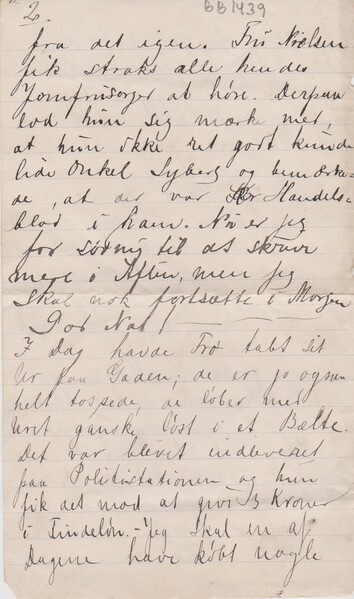 2.
BB1439
fra det igen. Frü Nielsen
fik straks alle hendes
Jomfrusorger at høre. Derpaa
lod hün sig mærke med,
at hün ikke ret godt kunde
lide Onkel Syberg og bemærke-
de, at der var Handels-
blod i ham. Nü er jeg
for søvnig til at skrive
mere i Aften, men jeg
skal nok fortsætte i Morgen
God Nat
I Dag havde Frø tabt sit
Ur paa Gaden; de er jo ogsaa
helt tossede, de løber med
Uret ganske løst i et Bælte.
Det var blevet indleveret
paa Politistationen og hun
fik det mod at give 3 Kroner
i Findeløn. - Jeg skal en af
Dagene have købt nogle